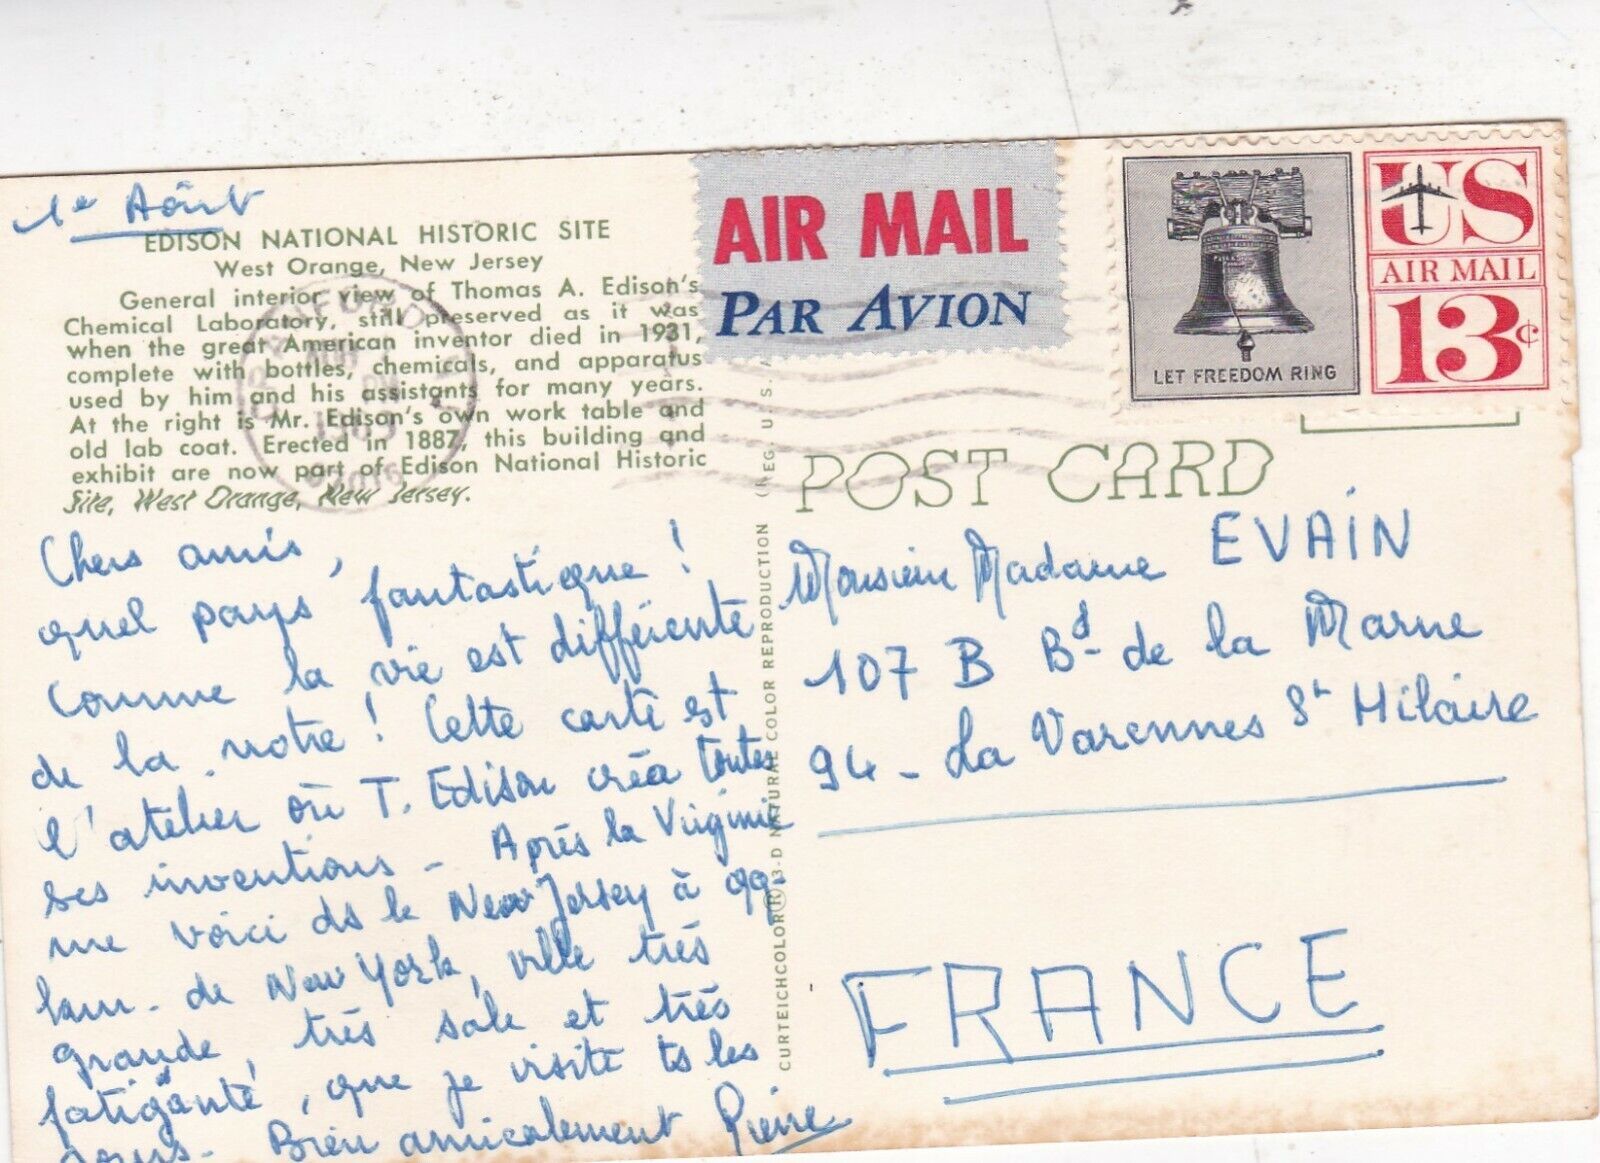 1e Août
EDISON NATIONAL HISTORIC SITE
West Orange, New Jersey
General interior view of Thomas A. Edison's
Chemical Laboratory, still preserved as it was
when the great American inventor died in 1931,
complete with bottles, chemicals, and apparatus
used by him and his assistants for many years.
At the right is Mr. Edison's own work table and
old lab coat. Erected in 1887, this building and
exhibit are now part of Edison National Historic
Site, West Orange, New Jersey.
Chers amis,
quel pays fantastique!
Comme la vie est différente
de la notre! Cette carte est
l'atelier où T. Edison créa toutes
ses inventions - Après la Virginie
me voici ds le New Jersey à 99
km - de New York, ville très
grande, très sale et très
fatigante, que je visite ts les
jours - Bien amicalement Pierre
CURTEICHCOLOR® 3-D NATURAL COLOR REPRODUCTION (REG. U. S. A.
AIR MAIL
PAR AVION
LET FREEDOM RING
US
AIR MAIL
13¢
POST CARD
Monsieur Madame EVAIN
107 B Bd de la Marne
94 - La Varennes St Hilaire
FRANCE